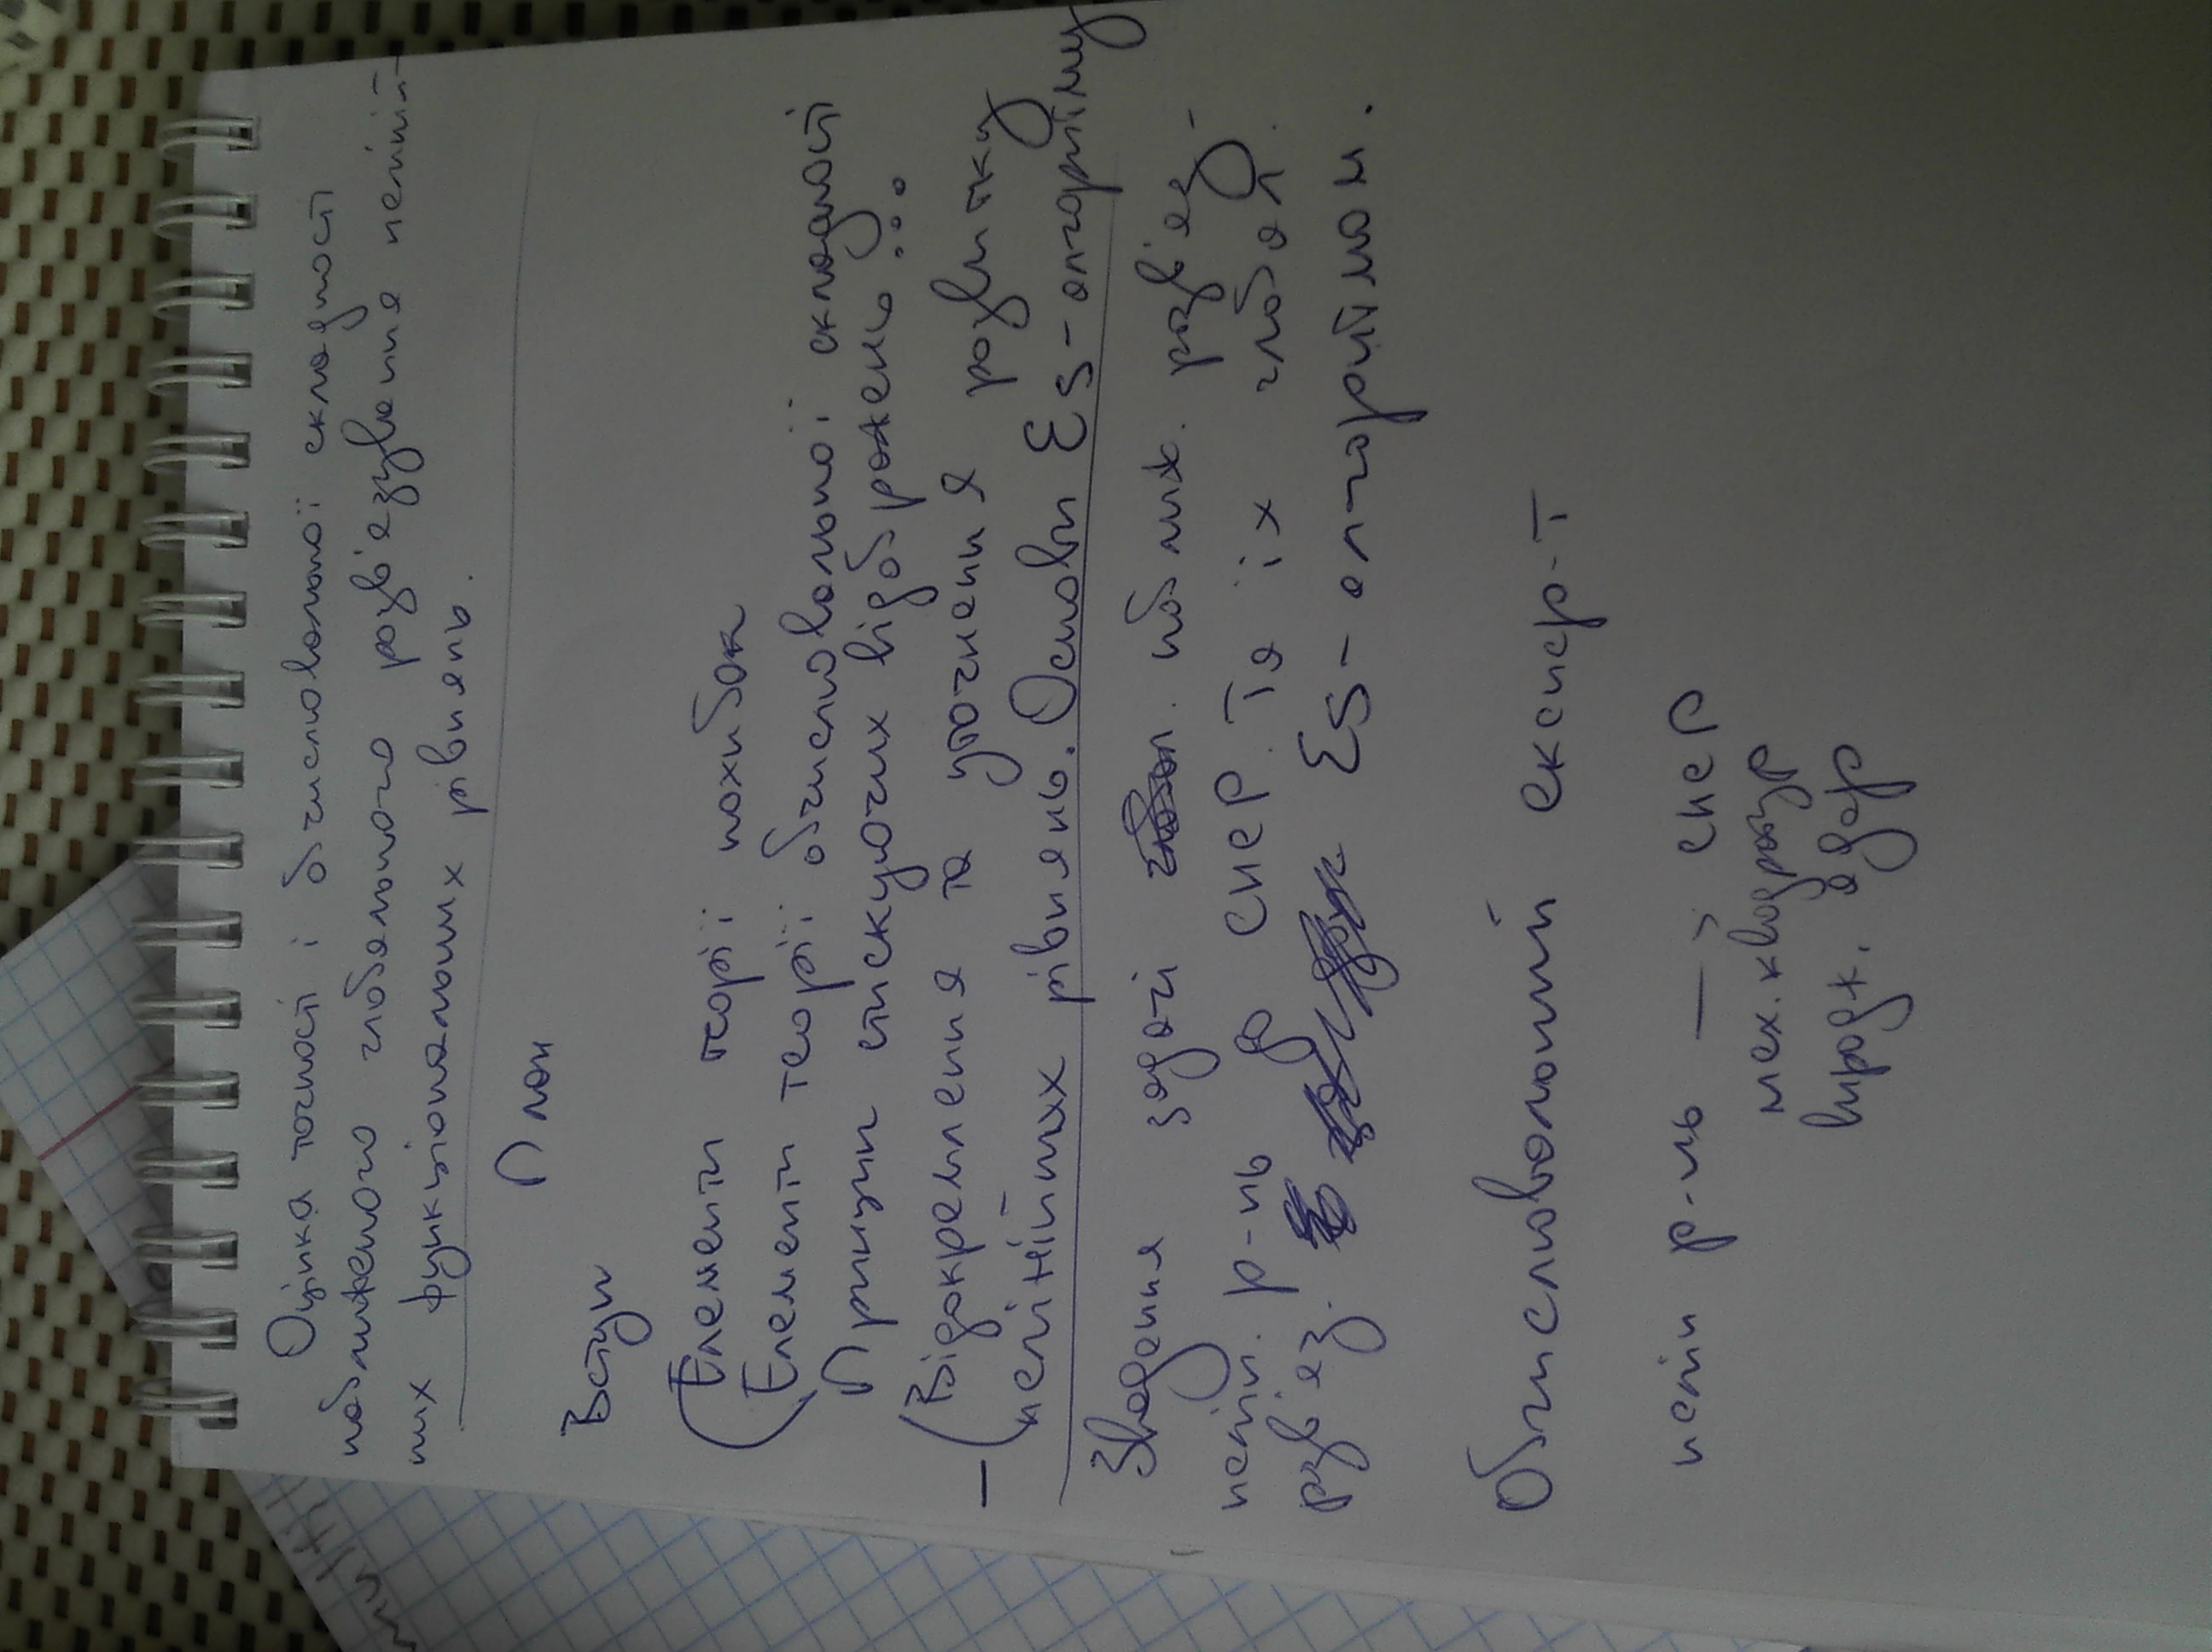 Оцінка точності і обчислювальної складності
наближеного глобального розв'язування неліній-
них функціональних рівнянь.
План
Вступ
Елементи теорії похибок
Елементи теорії обчислювальної складності
Принцип стискуючих відображень...
Відокремлення та уточнення розвитку
нелінійних рівнянь. Основи Es-алгоритму
Зведення задачі наближ. розв'яз-
нелін. р-нь до СНЕР. Та їх глобал.
розв'яз. Es-алгоритмом.
Обчислювальний експер-т
нелін р-нь —> СНЕР
мех. квадратур
виродж. ядер